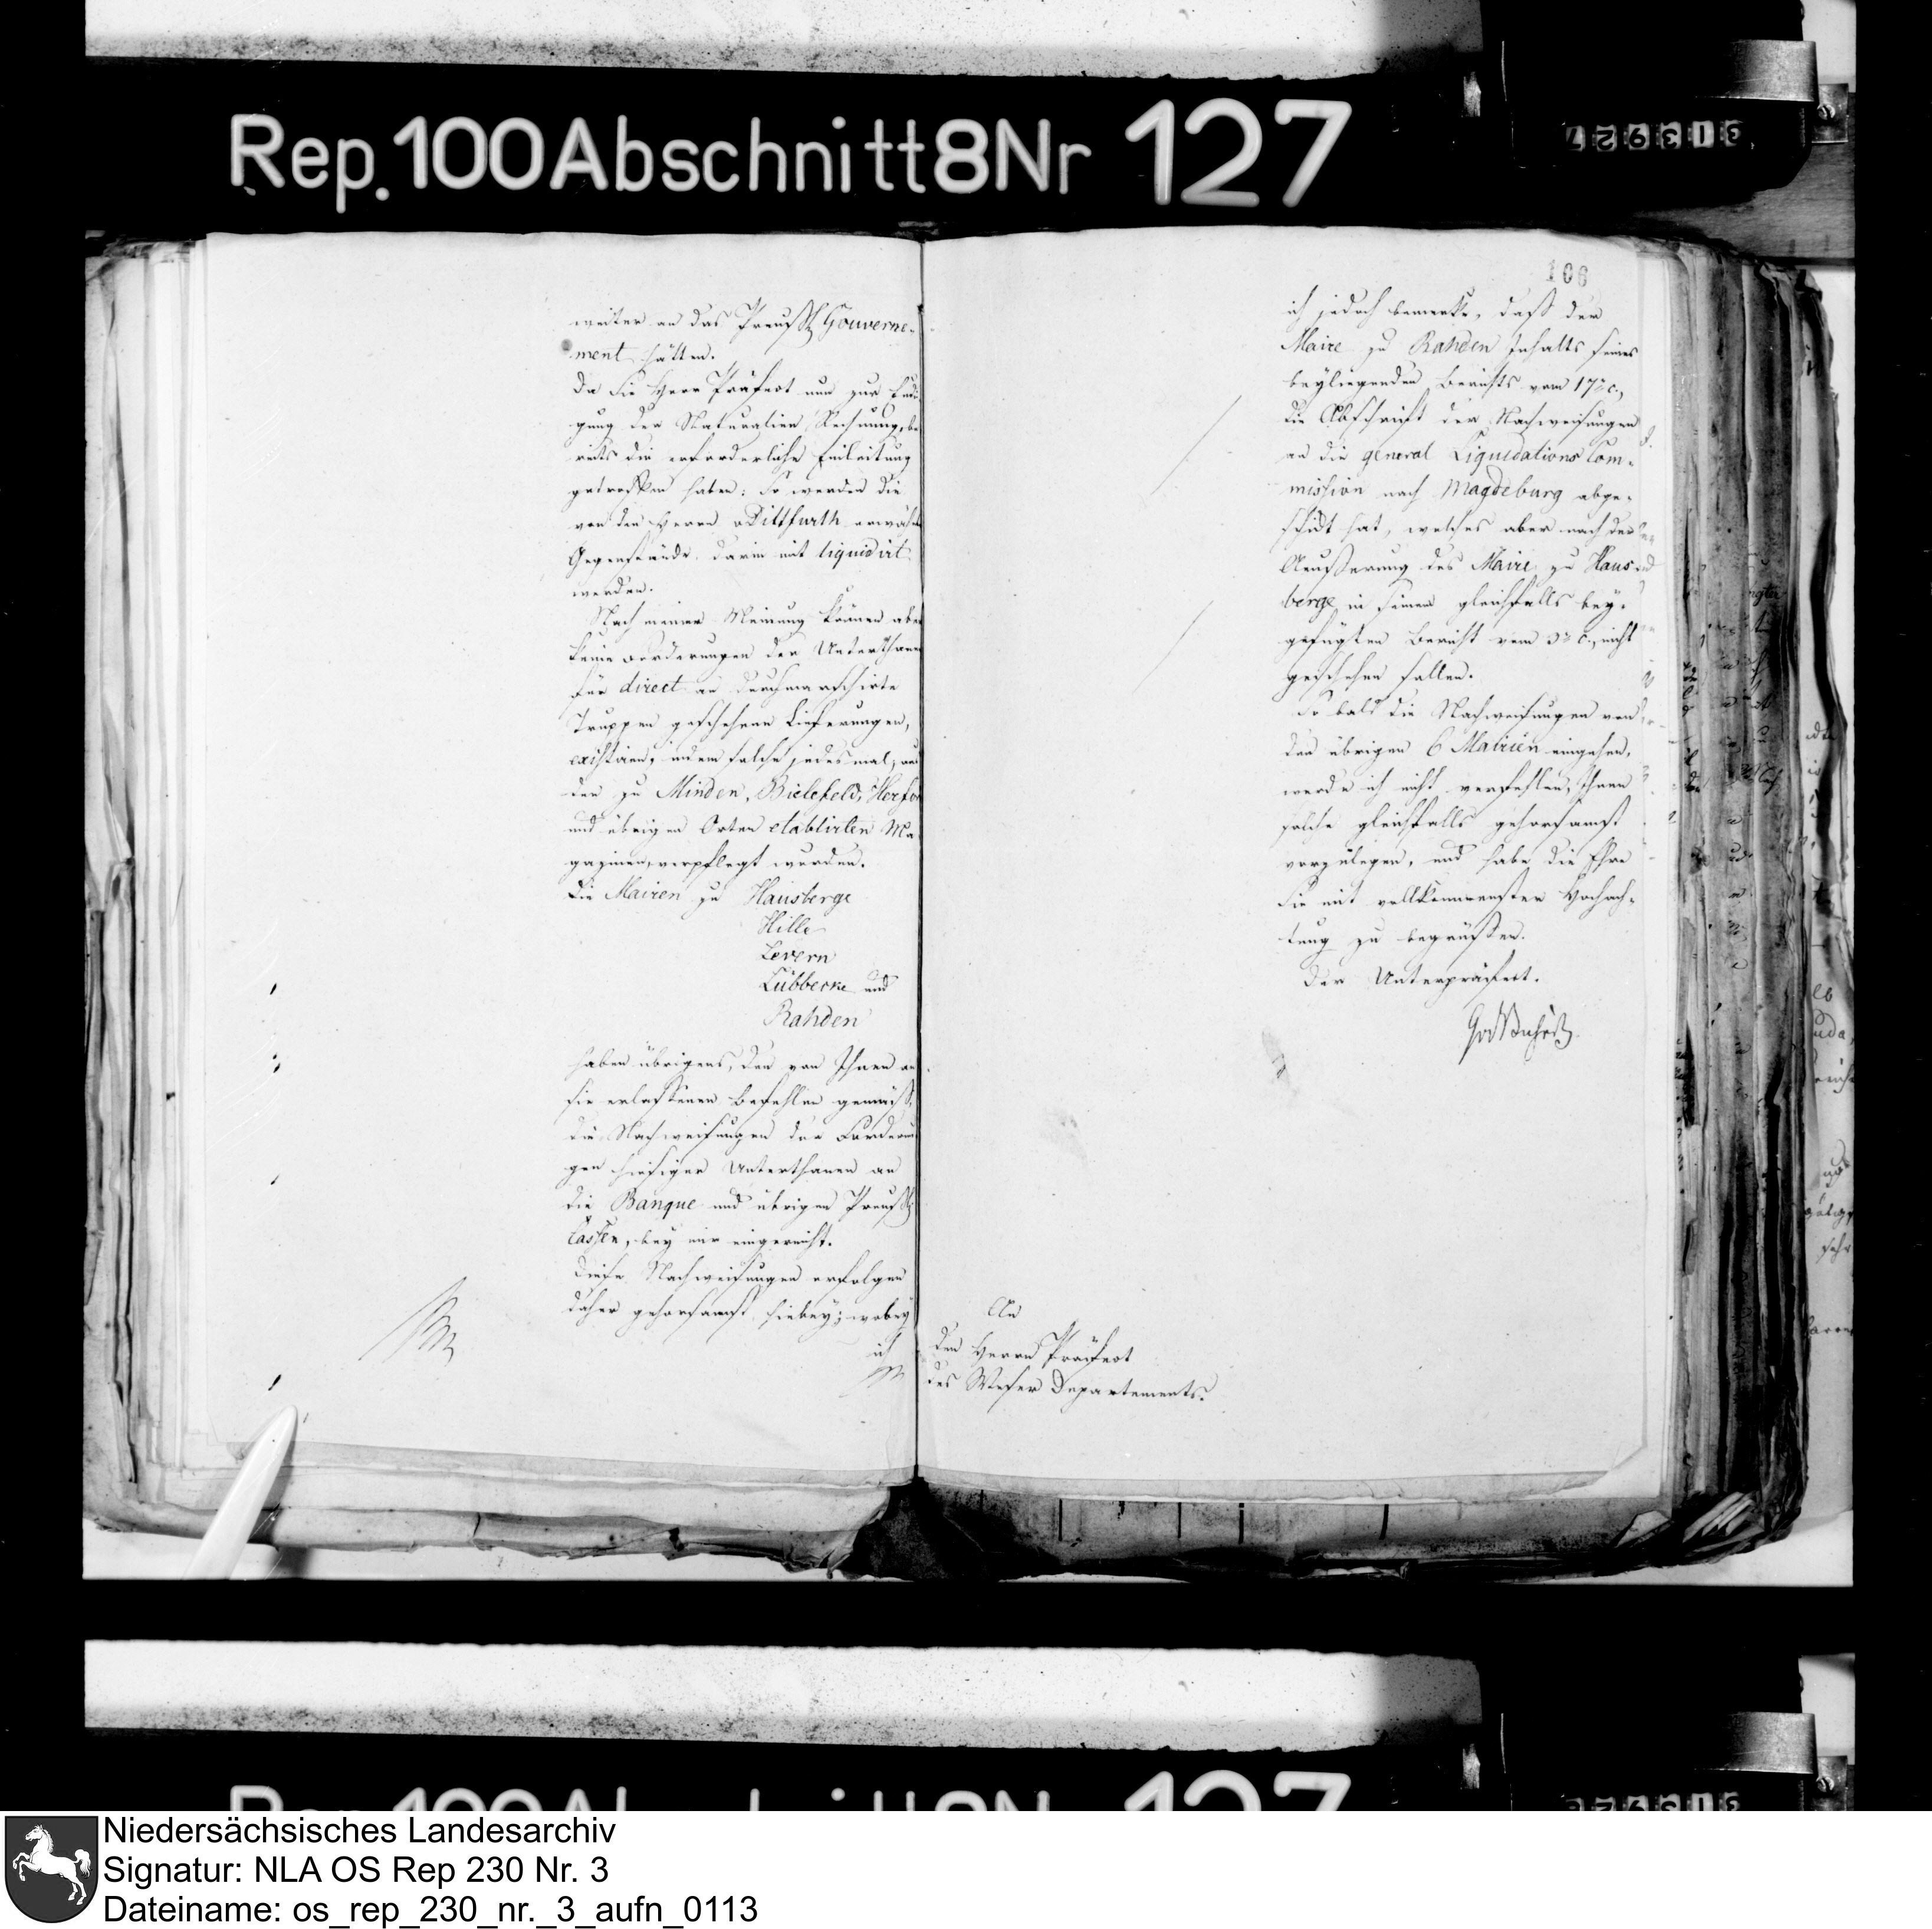 Rep. 100 Abschnitt 8 Nr 127
313927
weiter an das Preußl Gouverne-
ment hätten.
Da Sie Herr Präfect nun zur
gung der Naturalien Rechnung, be
reits die erforderliche Einleitung
getroffen haben: So werden die
von den Herrn v Dittfurth erwähn
Gegenstände darin mit liquidirt
werden.
Nach meiner Meinung können aber
keine Forderungen der Unterthanen
für direct an durchmarschirte
Truppen geschehene Lieferungen,
existiren, indem solche jedesmal, aus
den zu Minden, Bielefeld, Herfor
und übrigen Orten etablirten Ma
gazinen, verpflegt wurden.
Die Mairen zu Hausberge
Hille
Levern
Lübbecke und
Rahden
haben übrigens, den von Ihnen an
sie erlassenen Befehlen gemäß,
die Nachweisungen der Forderun
gen hiesiger Unterthanen an
die Banque und übrigen Preußl
Cassen, bey mir eingereicht.
Diese Nachweisungen erfolgen
daher gehorsamst hiebey; wobey
ich
106
ich jedoch bemerke, daß der
Maire zu Rahden Inhalts seines
beyliegenden Berichts vom 17 c.,
die Abschrift der Nachweisungen
an die general Liquidations Com-
mission nach Magdeburg abge-
schickt hat, welches aber nach der
Aeußerung des Maire zu Haus
berge in seinem gleichfalls bey-
gefügten Bericht vom 3 c., nicht
geschehen sollen.
So bald die Nachweisungen von
den übrigen 6 Mairien eingehen,
werde ich nicht verfehlen, Ihnen
solche gleichfalls gehorsamst
vorzulegen, und habe die Ehre
Sie mit vollkommenster Hochach-
tung zu begrüßen.
Der Unterpräfect.
An
den Herrn Präfect
des Weser Departements.
Niedersächsisches Landesarchiv
Signatur: NLA OS Rep 230 Nr. 3
Dateiname: os_rep_230_nr._3_aufn_0113